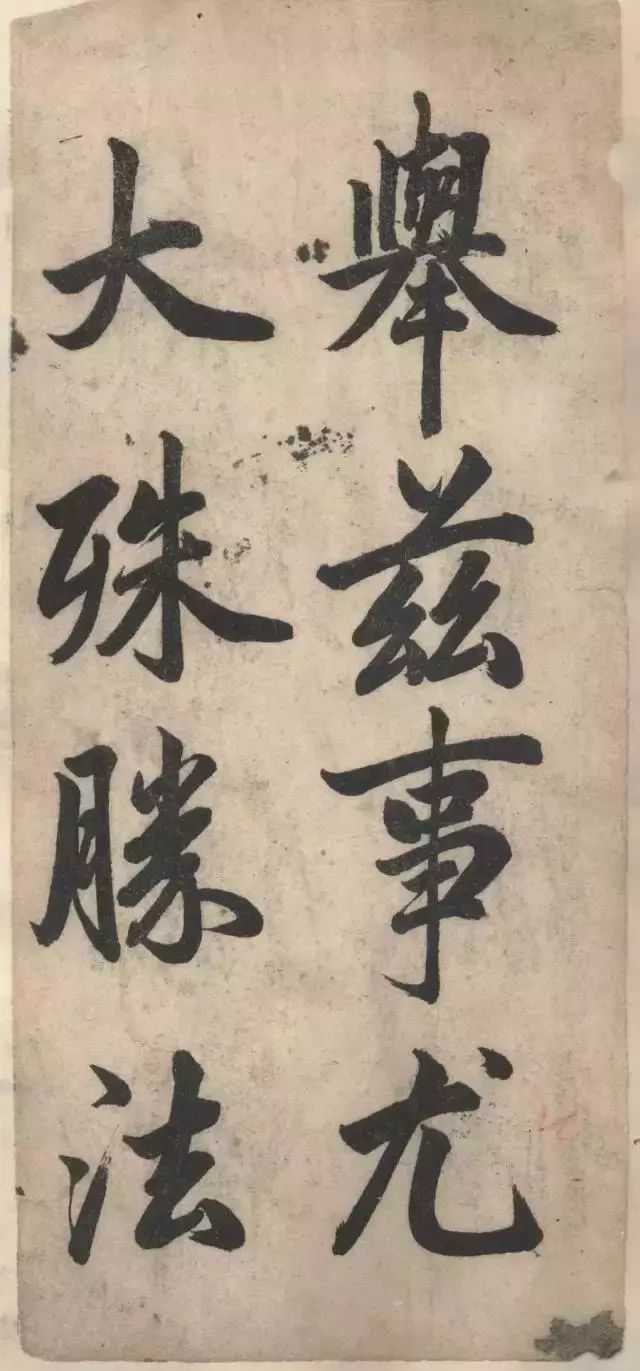 舉兹事尤
大殊勝法